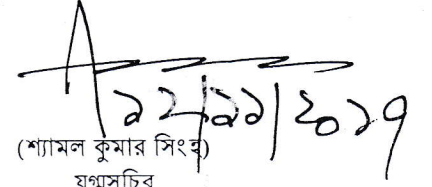 ১২/১১/২০১৭
(শ্যামল কুমার সিংহ)
যুগ্মসচিব